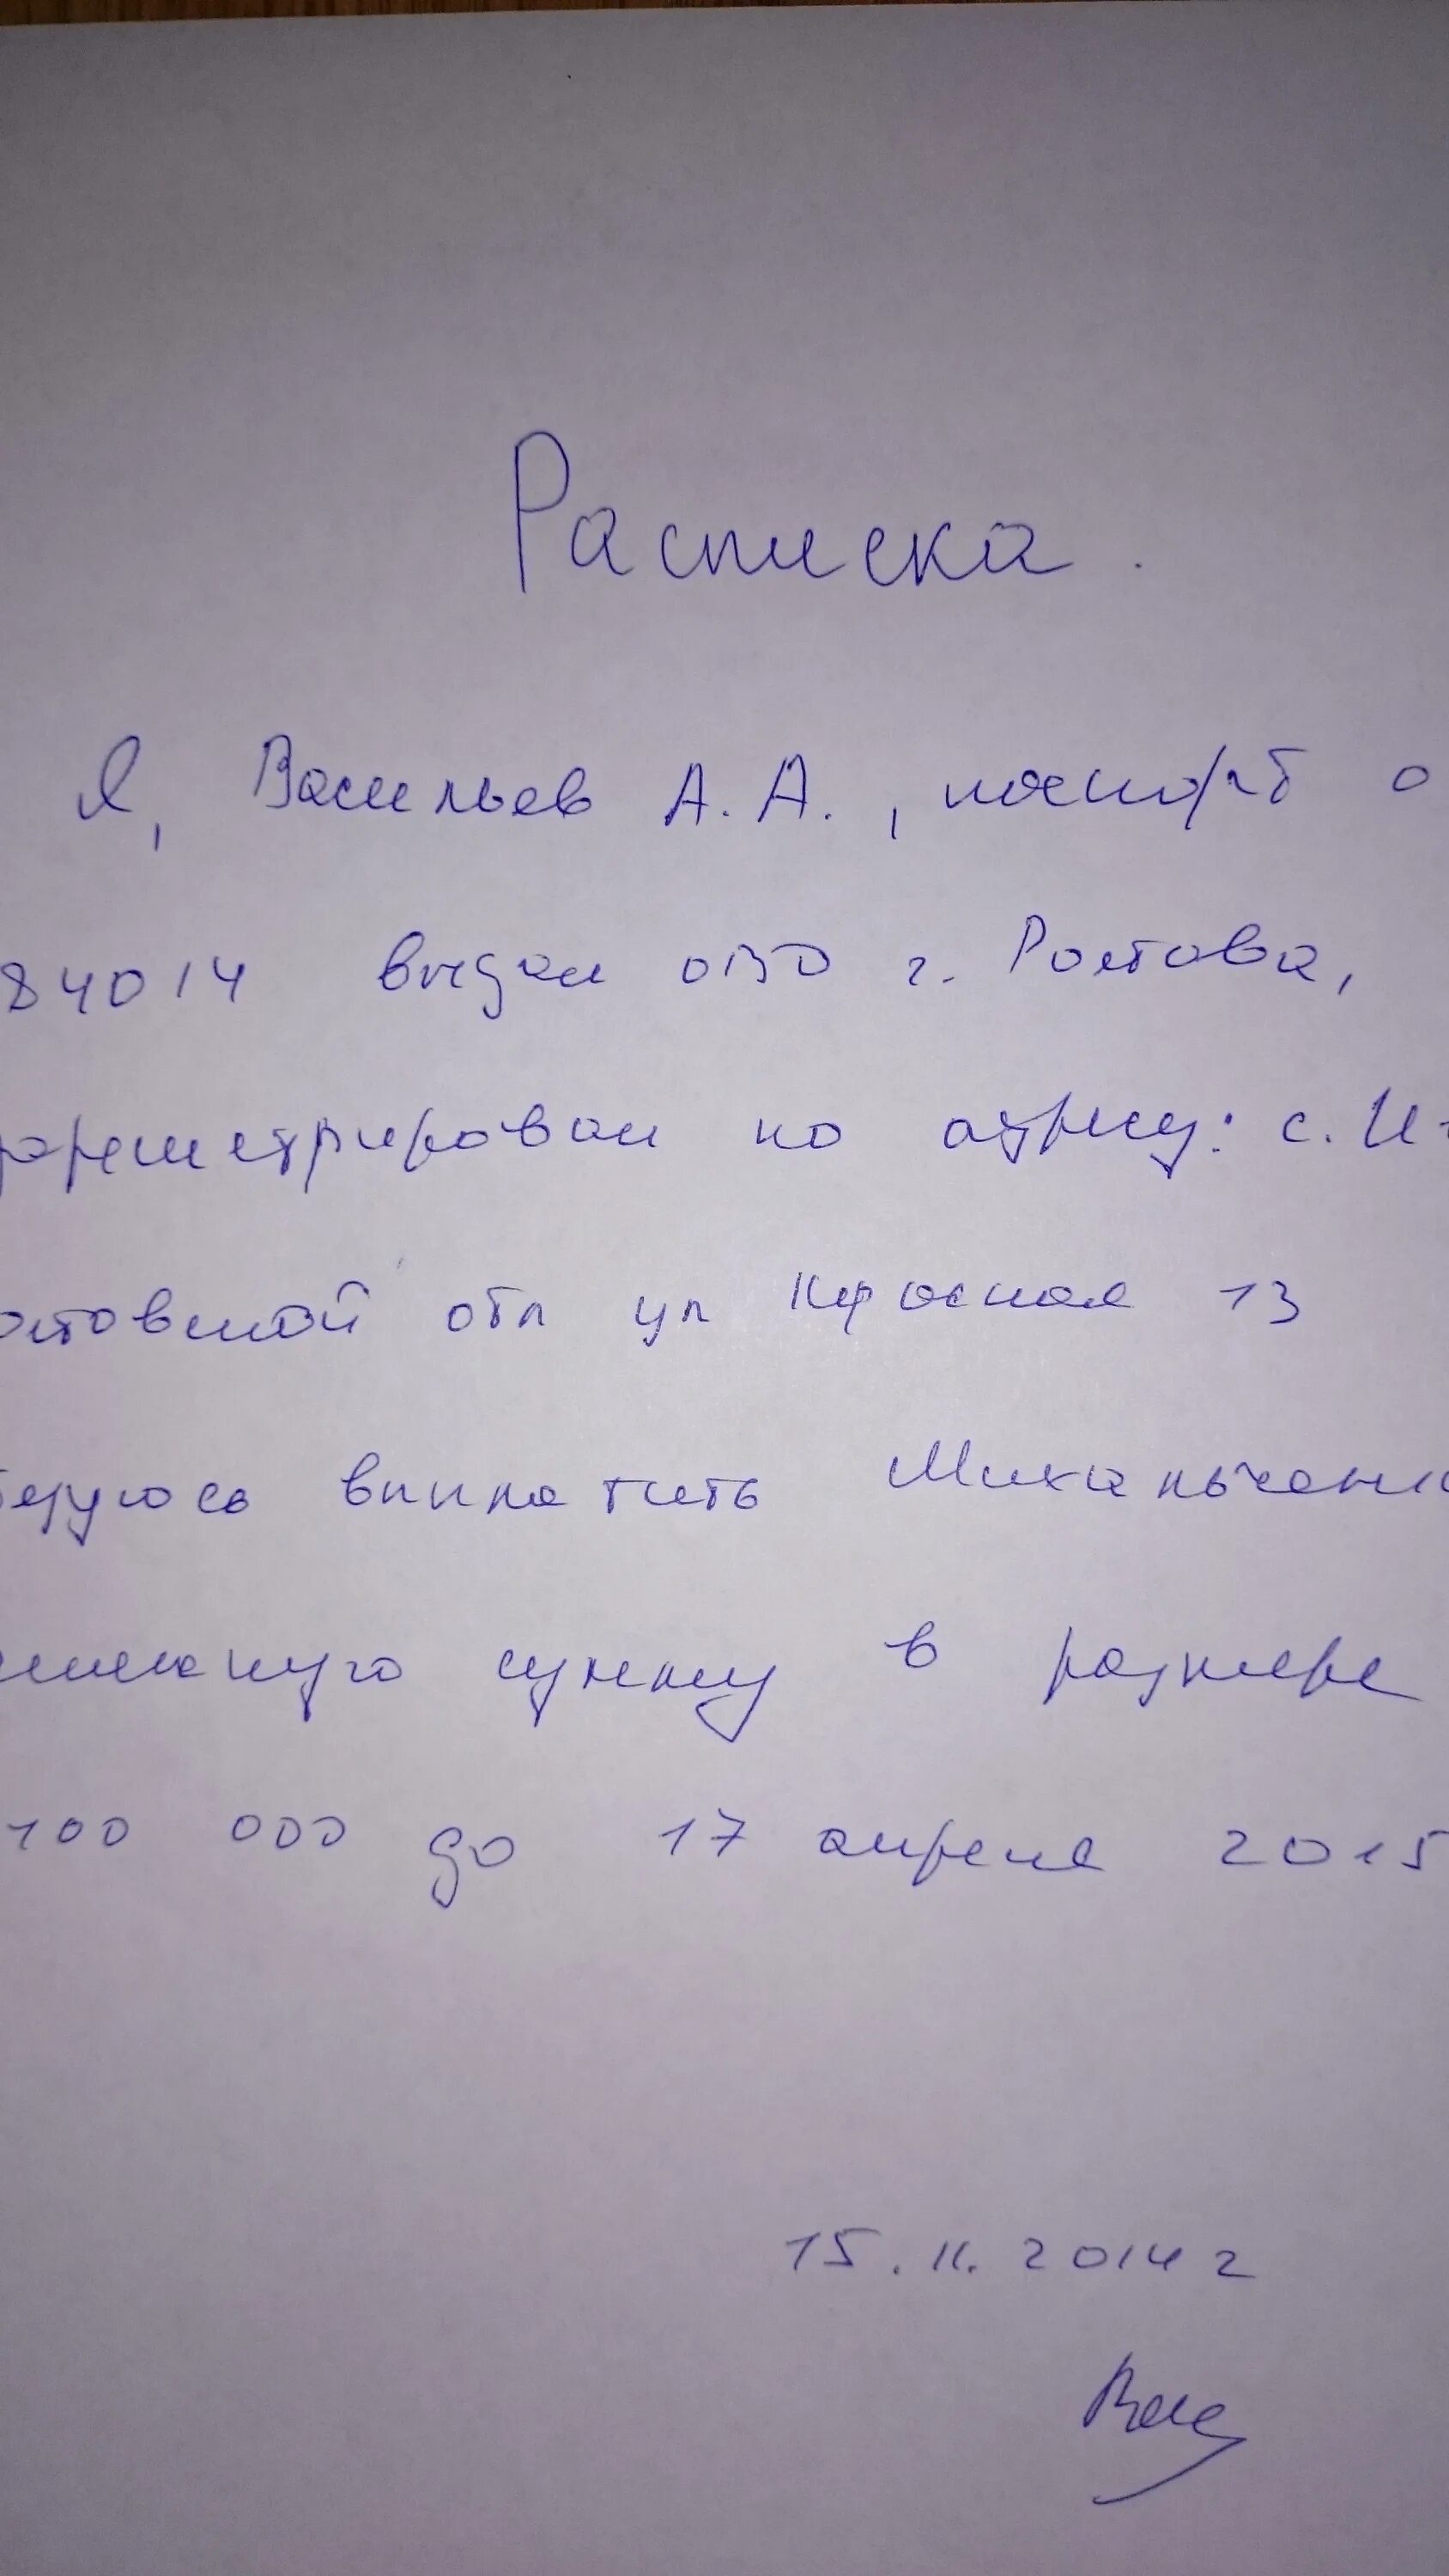 Расписка.
Я, Васильев А.А., паспорт 0
84014 выдан ОВО г. Ростова,
зарегистрирован по адресу: с.
стовской обл ул Красная 13
выплатить Михальченко
сумму в размере
100 000 до 17 апреля 2015
15.11.2014 г
Вас